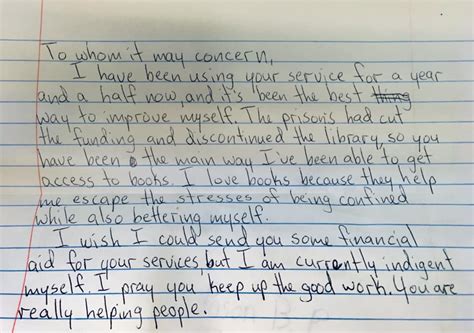 To whom it may concern,
I have been using your service for a year
and a half now, and it's been the best thing
way to improve myself. The prison's had cut
the funding and discontinued the library, so you
have been the main way I've been able to get
access to books. I love books because they help
me escape the stresses of being confined
while also bettering myself.
I wish I could send you some financial
aid for your services, but I am currently indigent
myself. I pray you keep up the good work. You are
really helping people.